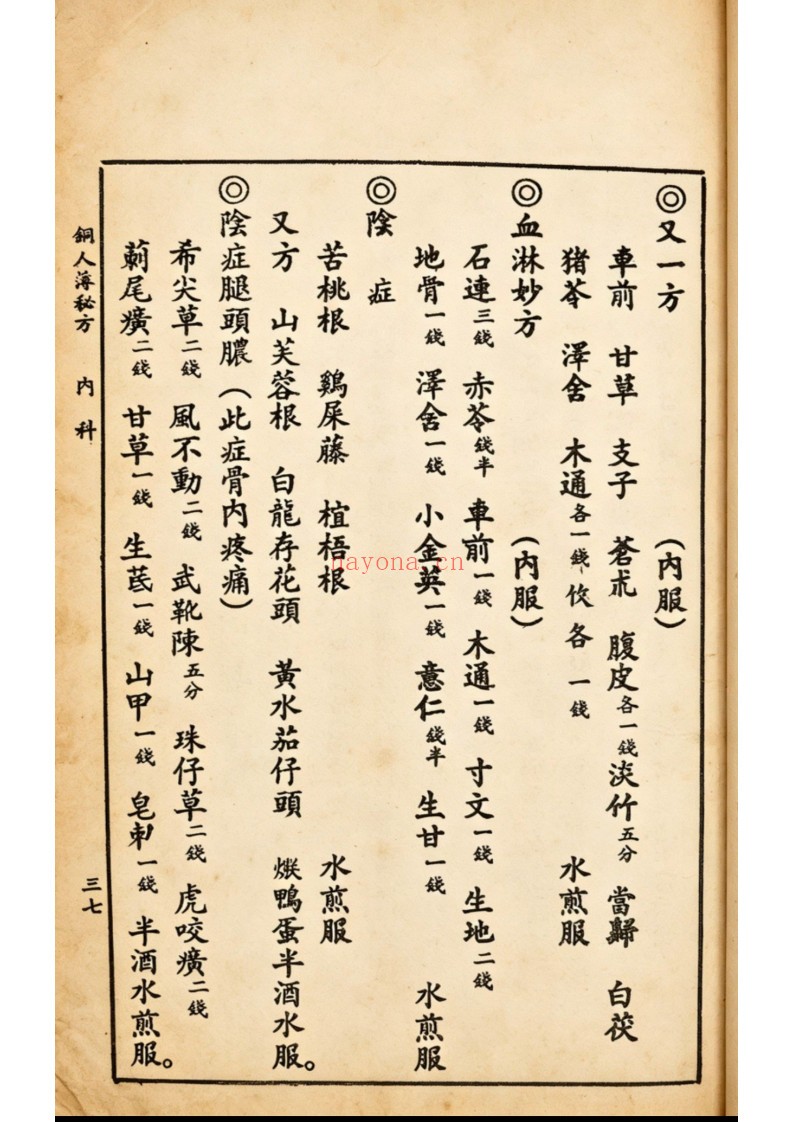 ◎又一方　（內服）
車前　甘草　支子　蒼朮　腹皮各一錢　淡竹五分　當歸　白茯
猪苓　澤舍　木通各一錢　攸各一錢　水煎服
◎血淋妙方　（內服）
石連三錢　赤苓錢半　車前一錢　木通一錢　寸文一錢　生地二錢
地骨一錢　澤舍一錢　小金英一錢　意仁錢半　生甘一錢　水煎服
◎陰症
苦桃根　鷄屎藤　楦梧根　水煎服
又方　山芙蓉根　白龍存花頭　黃水茄仔頭　煅鴨蛋半酒水服。
◎陰症腿頭膿（此症骨內疼痛）
希尖草二錢　風不動二錢　武靴陳五分　珠仔草二錢　虎咬癀二錢
莿尾癀二錢　甘草一錢　生芪一錢　山甲一錢　皂刺一錢　半酒水煎服。
銅人簿秘方　內科　三七
nayona.cn